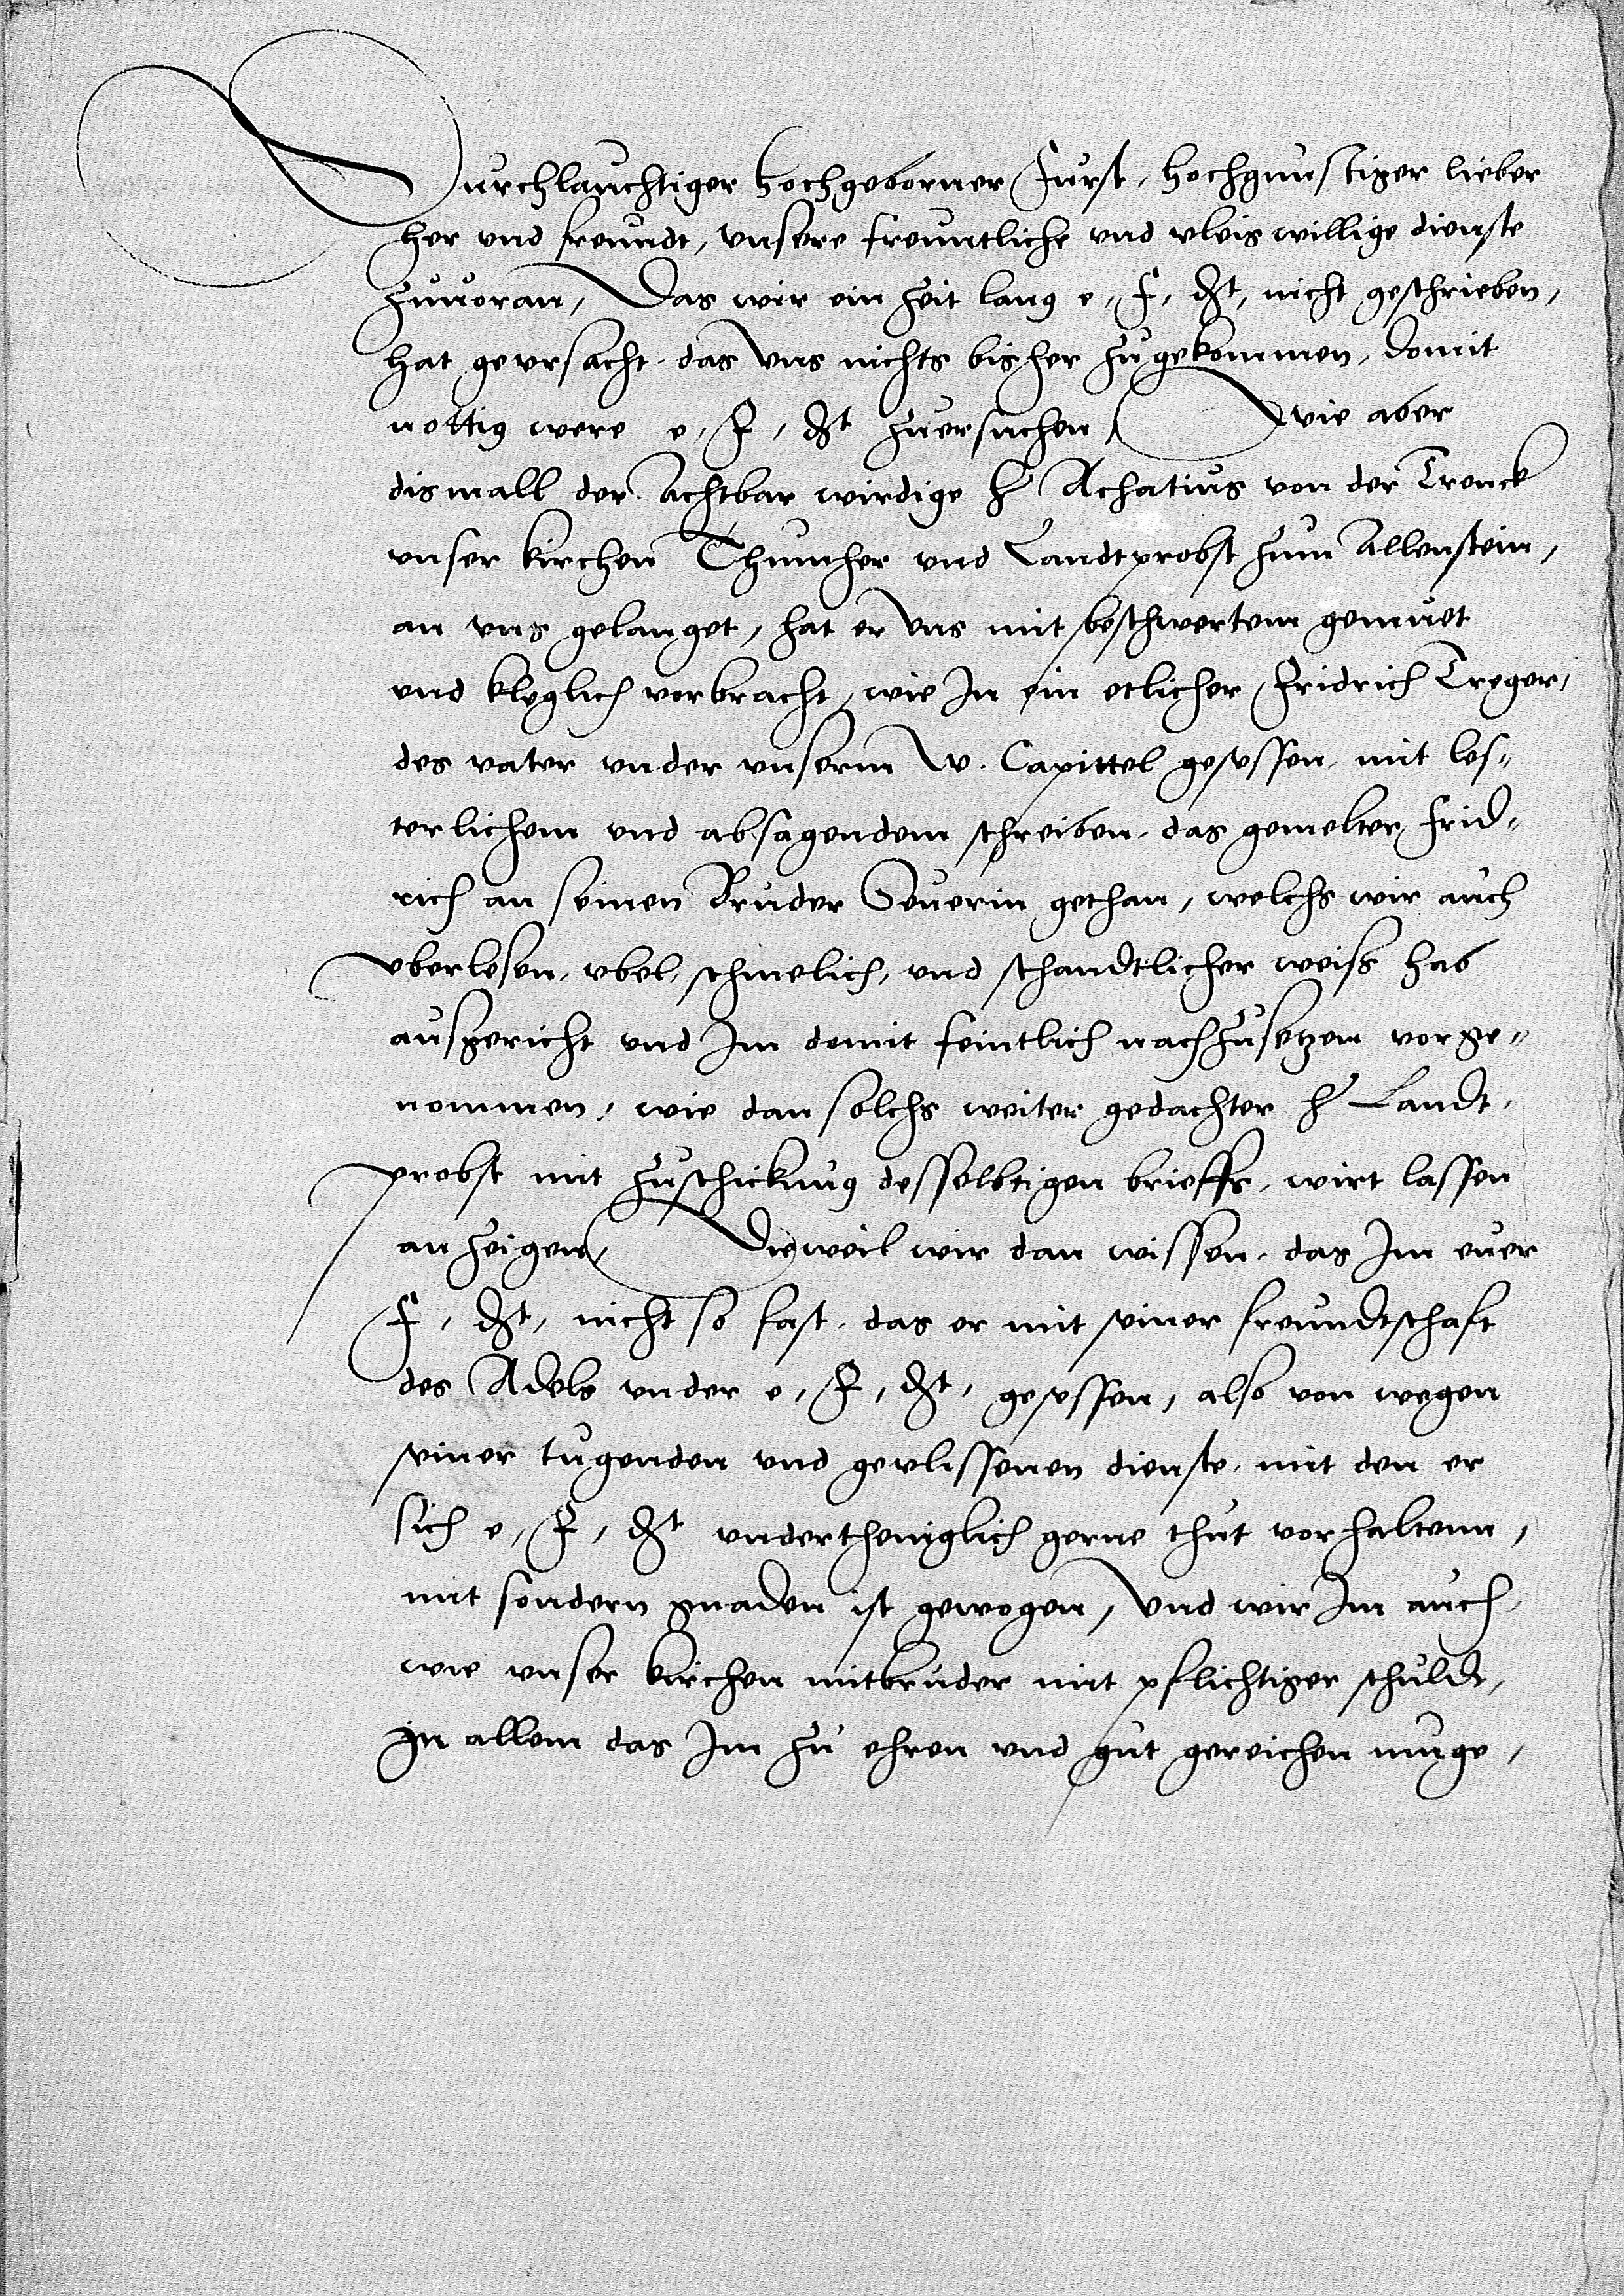 Durchlauchtiger hochgeborner Furst, hochgunstiger lieber
her vnd freundt, vnsere freuntliche vnd vleis willige dienste
zuuoran, Das wir ein zeit lang e, f, dt, nicht geschrieben,
hat gevrsacht, das vns nichts bisher zugekommen, domit
nottig were e, F, dt zuersuchen, Wie aber
dismall der Achtbar wirdige h Achatius von der Trenck
vnser kirchen Thumher vnd Landtprobst zum Allenstein,
an vns gelanget, hat er vns mit beschwertem gemuet
vnd kleglich vorbracht, wie In ein etlicher Fridrich Treger,
des vater vnder vnserm W. Capittel gesessen, mit les-
terlichem vnd absagendem schreiben, das gemelter Frid-
rich an seinen Bruder Seuerin gethan, welchs wir auch
vberlesen, vbel, schmelich, vnd schandtlicher weiss hab
ausgericht vnd Im domit feintlich nachzusetzen vorge-
nommen, wie dan solchs weiter gedachter h Landt-
probst mit zuschickung desselbtigen brieffs, wirt lassen
anzeigen, Dieweil wir dan wissen, das Im euer
f, dt, nicht so fast, das er mit seiner freundtschaft
des Adels vnder e, F, dt, gesessen, also von wegen
seiner tugenden vnd gevlissenen dienste, mit den er
sich e, F, dt vndertheniglich gerne thut vorhaltenn,
mit sondern gnaden ist gewogen, Vnd wir Im auch,
wie vnser kirchen mitbruder mit pflichtiger schuldt,
In allem das Im zu ehren vnd gut gereichen muge,